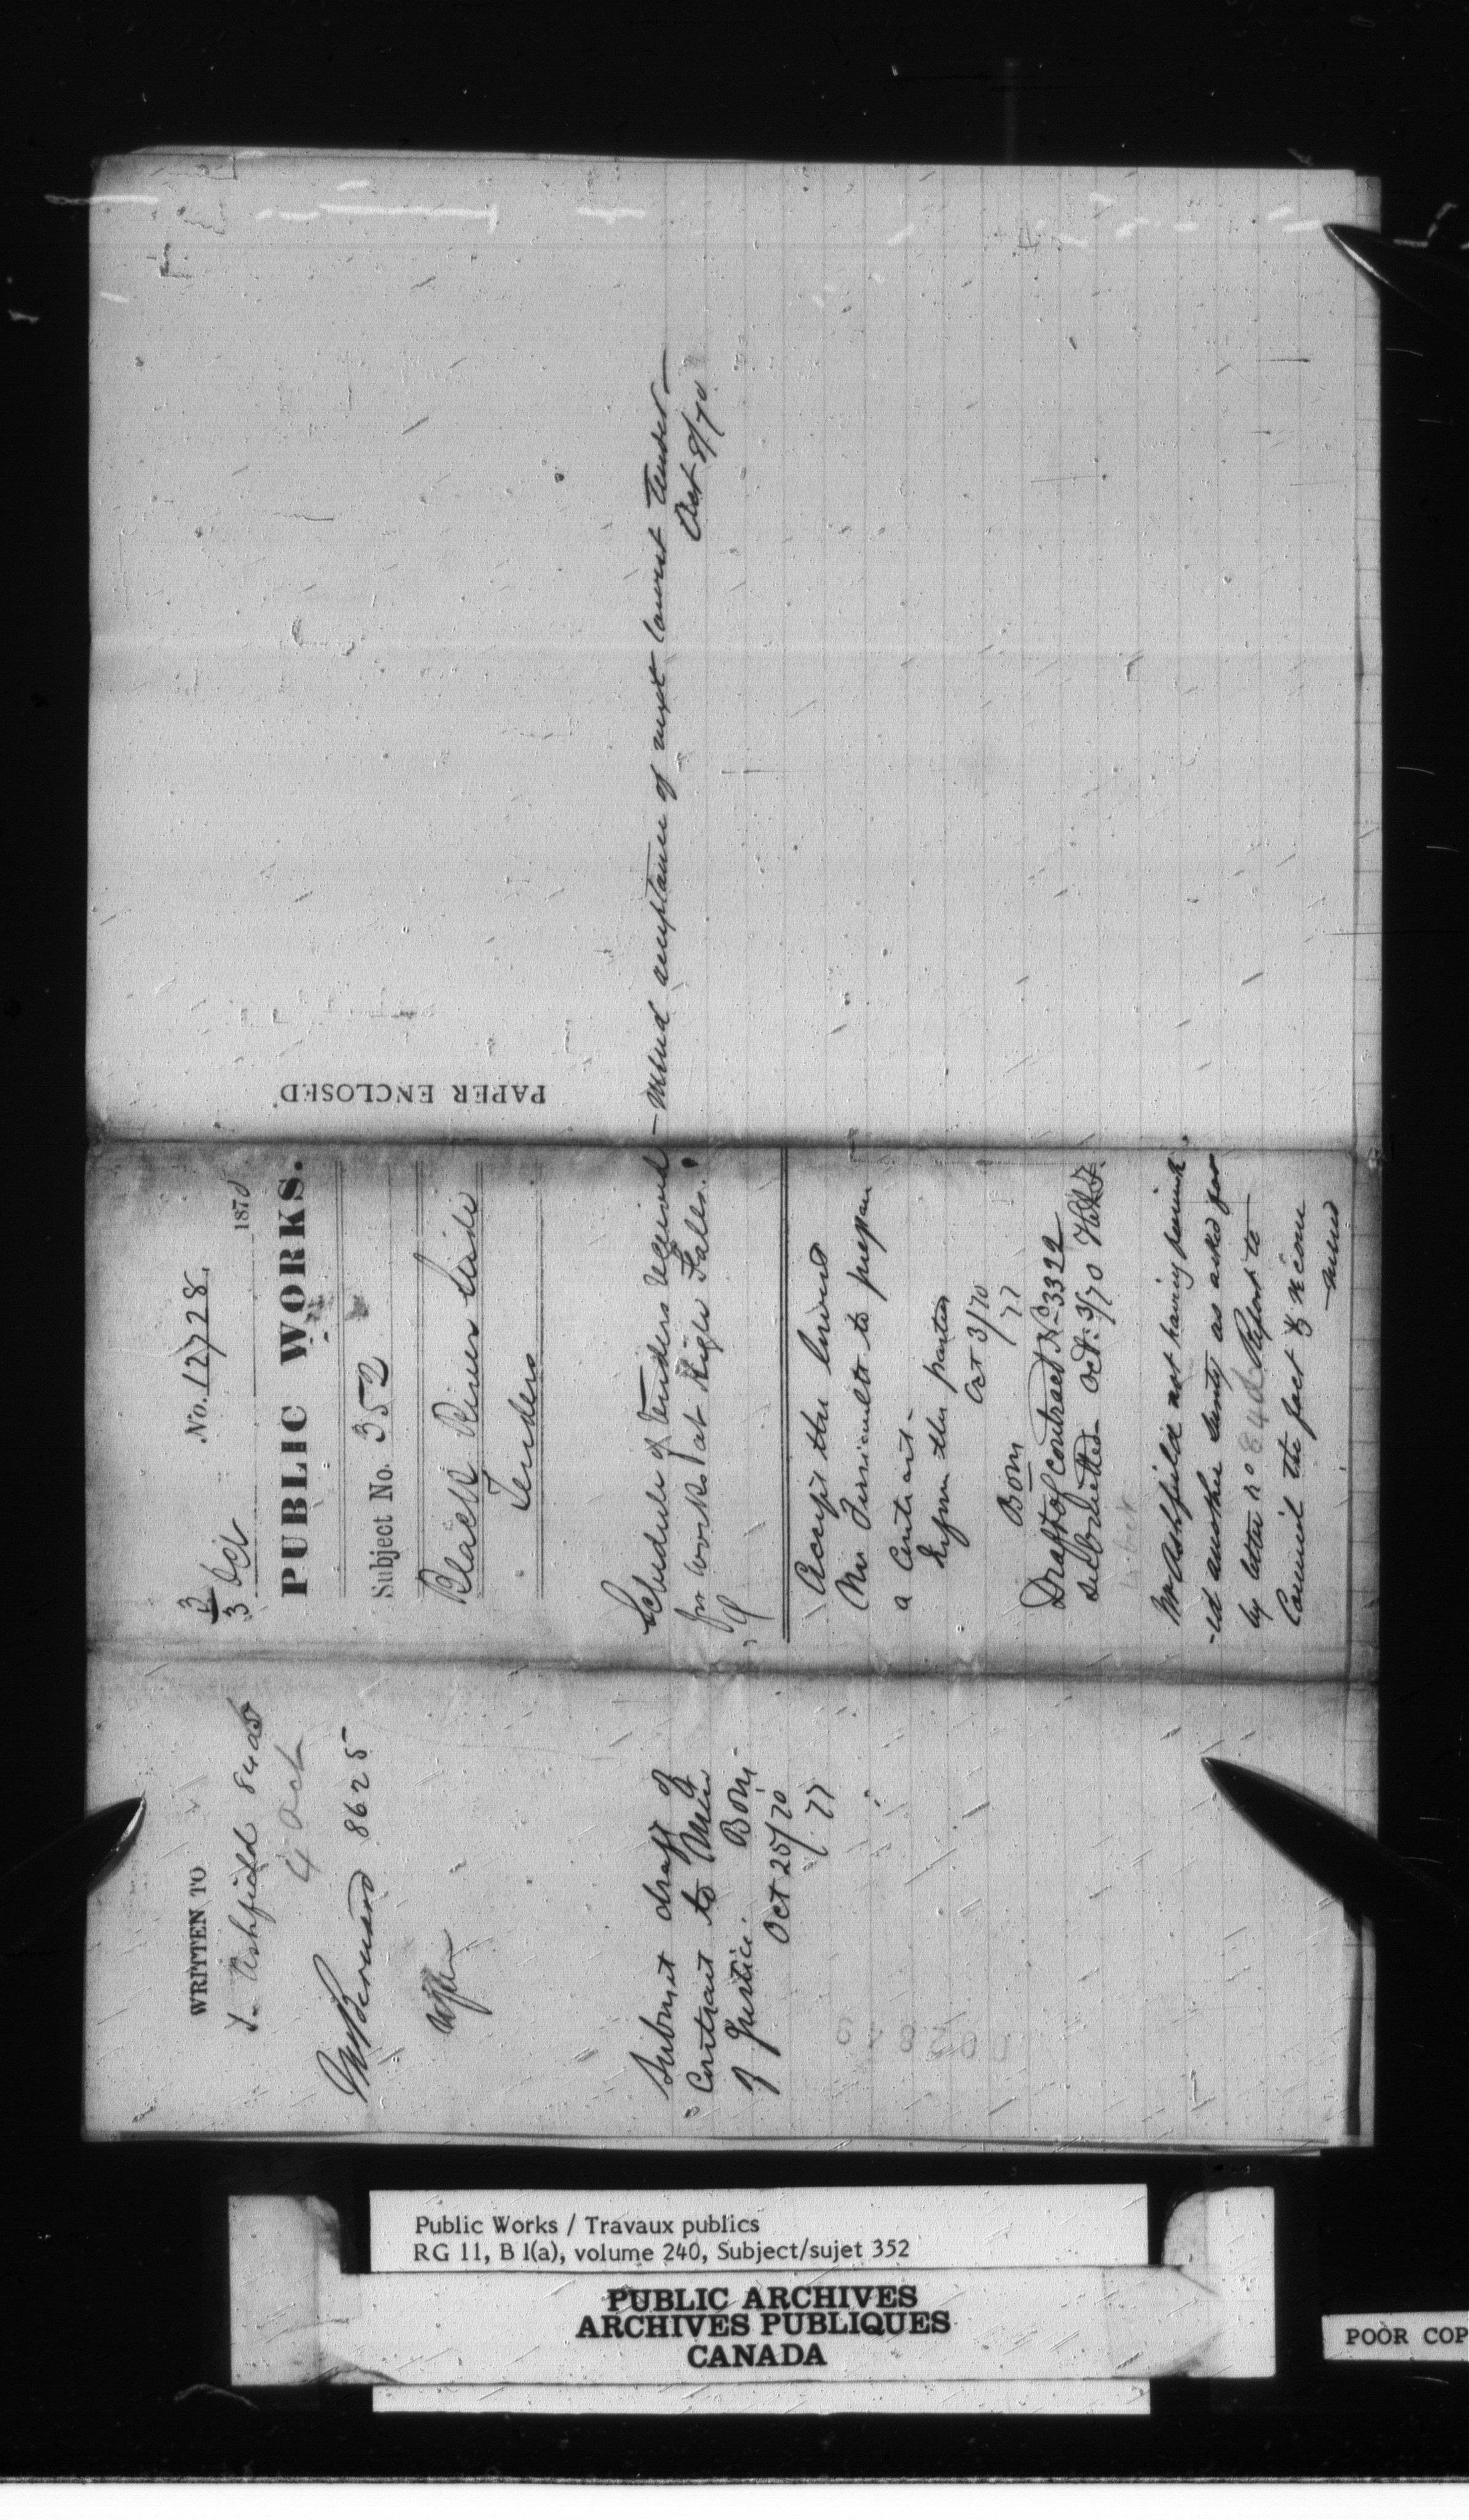 WRITTEN TO
J. Ashfield 8405
4 Oct
Bernard 8625
Submit draft of
Contract to Min
of Justice. Bom.
Oct 25/70
77
3
3 Oct
No. 12728.
1870
PUBLIC WORKS.
Subject No. 352
Black River Slide
Tenders
Schedule of Tenders received
for works at High Falls.
Accept the lowest
Mr to prepare
a Contract.
Inform the parties
Oct 3/70
77
Bom
Draft of contract No 3322
submitted Oct. 3/70
Mr Ashfield not having furnish
-ed another surety as asked for
by letter no 840 Report to
Council the fact & recom
mend
PAPER ENCLOSED
-mend acceptance of next lowest tender-
Oct 8/70
Public Works / Travaux publics
RG 11, B 1(a), volume 240, Subject/sujet 352
PUBLIC ARCHIVES
ARCHIVES PUBLIQUES
CANADA
POOR COP